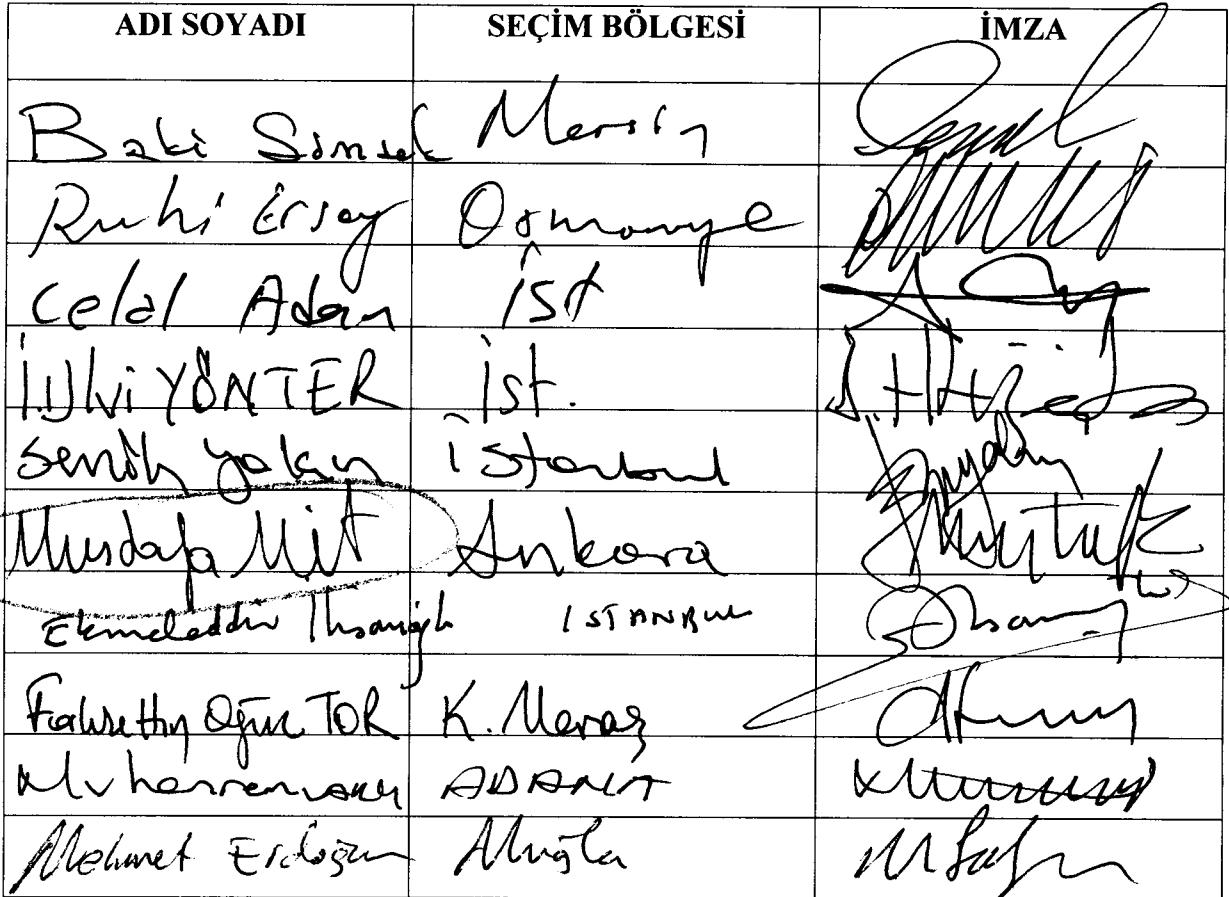 ADI SOYADI SEÇİM BÖLGESİ İMZA
Baki Şimşek Mersin
Ruhi Ersoy Osmaniye
Celal Adan İst
İ.Ulvi YÖNTER İst.
Semih Yalçın İstanbul
Mustafa Mit Ankara
Ekmeleddin İhsanoğlu İSTANBUL
Fahrettin Oğuz TOR K. Maraş
Muharrem VARLI ADANA
Mehmet Erdoğan Muğla